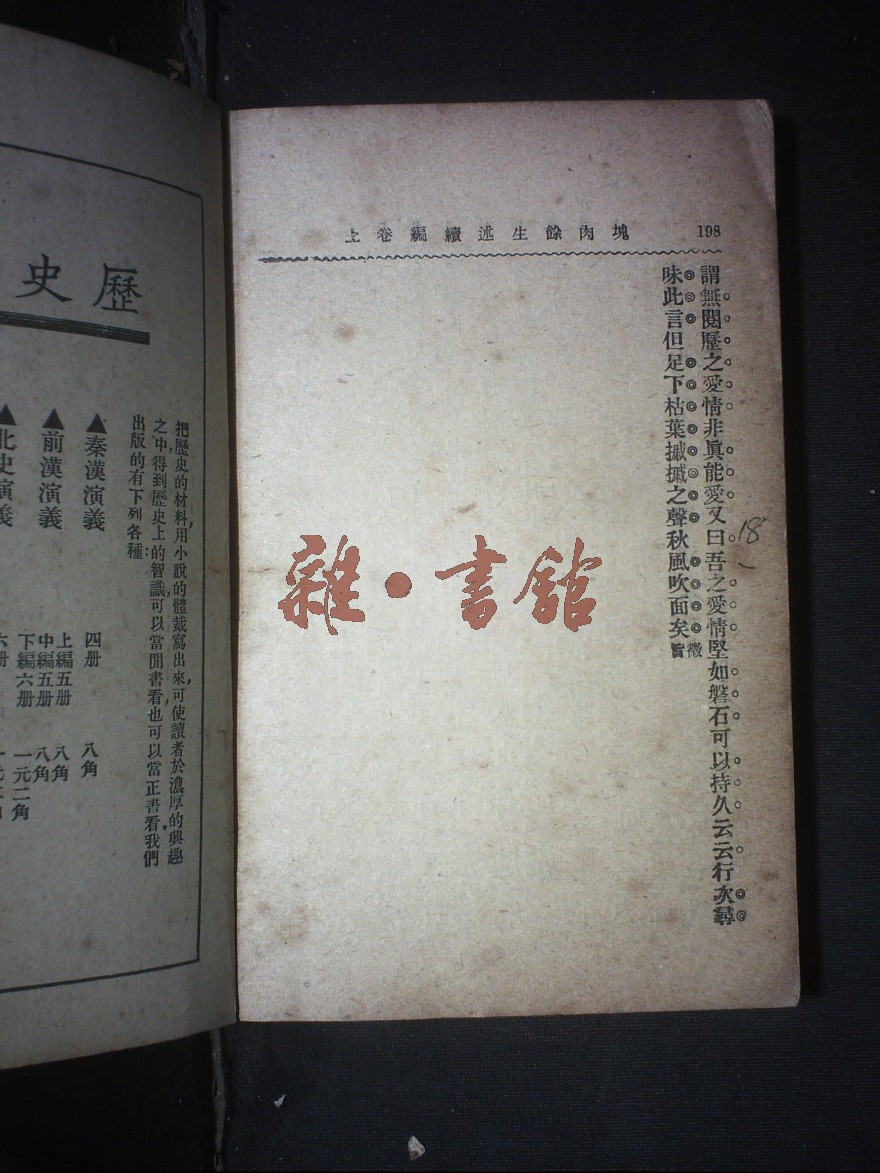 198
塊肉餘生述續編卷上
謂無閱歷之愛情非眞能愛又曰吾之愛情堅如磐石可以持久云云行次尋
味此言但足下枯葉摵摵之聲秋風吹面矣
微旨
18
雜·書館
歷史
把歷史的材料,用小說的體裁寫出來,可使讀者於濃厚的興趣
之中,得到歷史上的智識可以當閒書看也可以當正書看,我們
出版的有下列各種:
▲秦漢演義 四册 八角
▲前漢演義 上編五册 八角
中編五册 八角
下編六册 一元二角
▲北史演義 六册